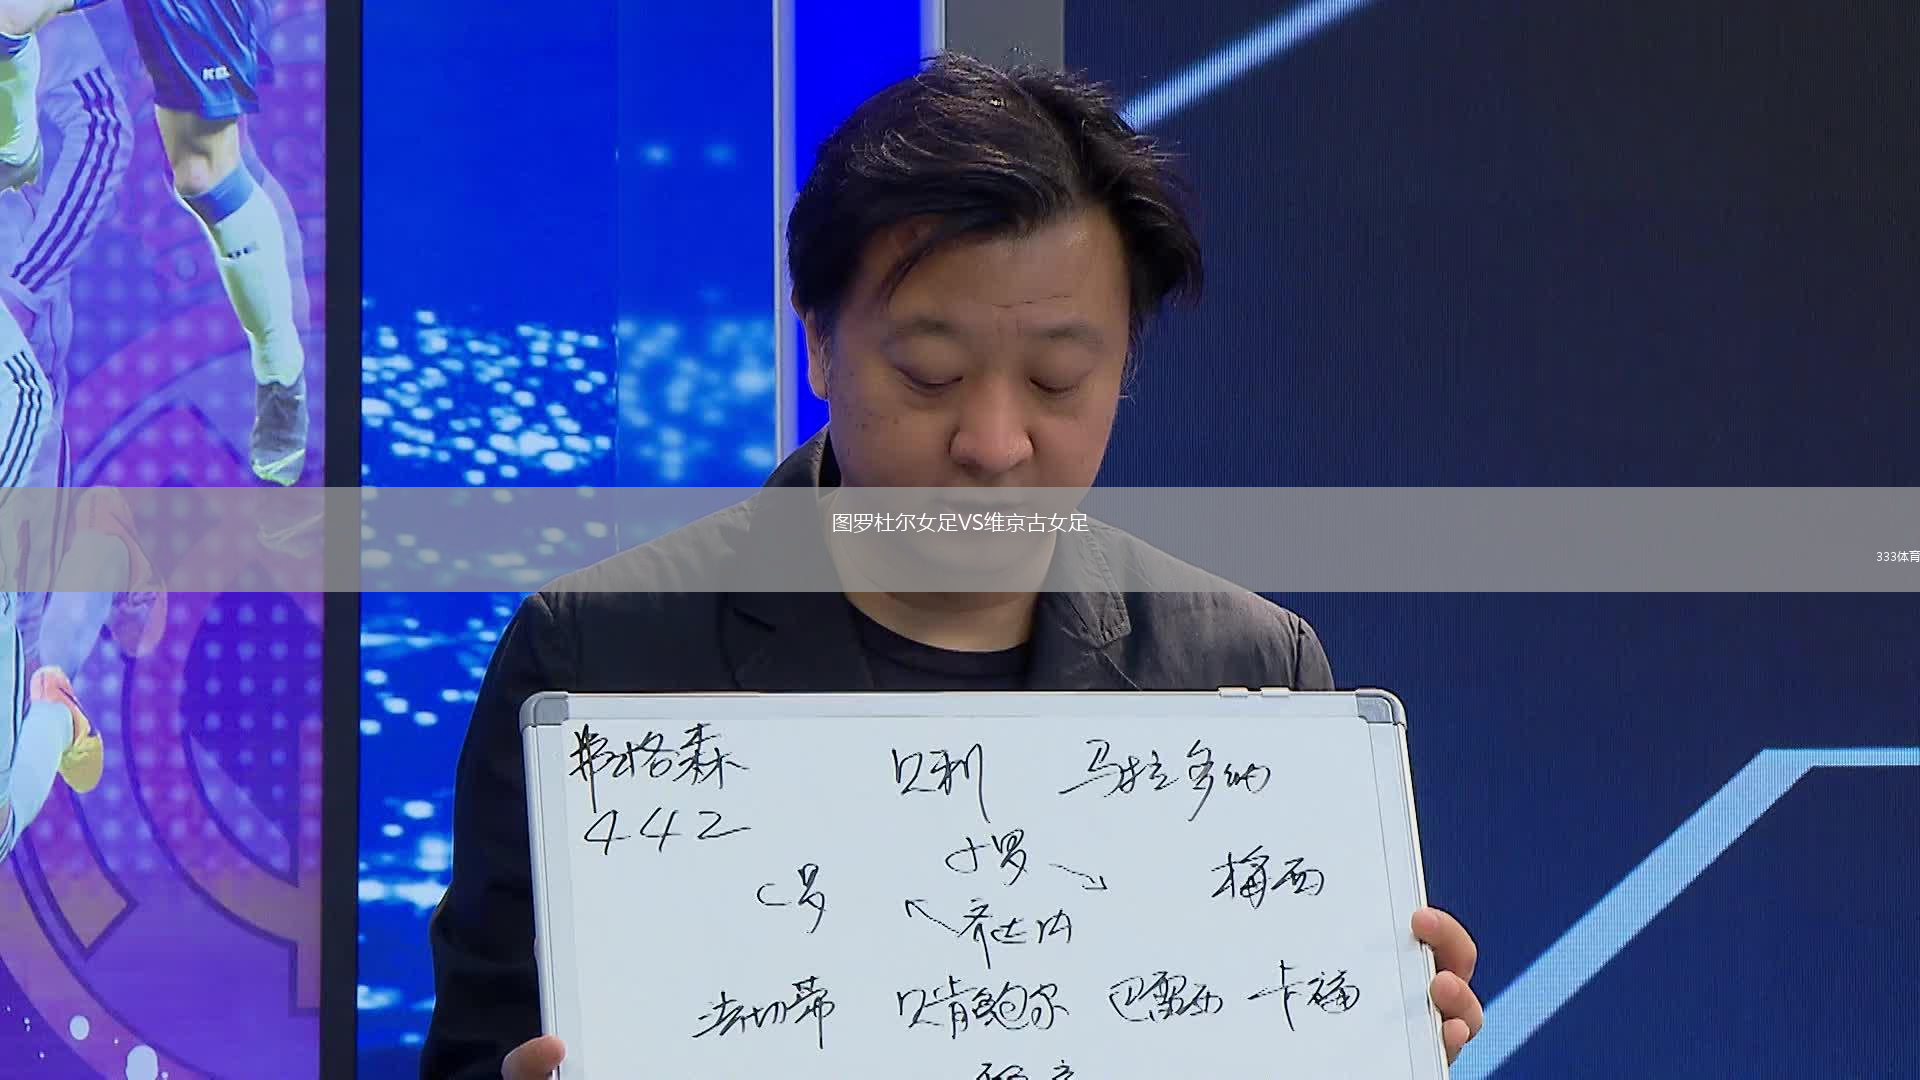 图罗杜尔女足VS维京古女足
333体育
弗格森 贝利 马拉多纳
442
小罗
C罗 梅西
齐达内
法切蒂 贝肯鲍尔 巴雷西 卡福